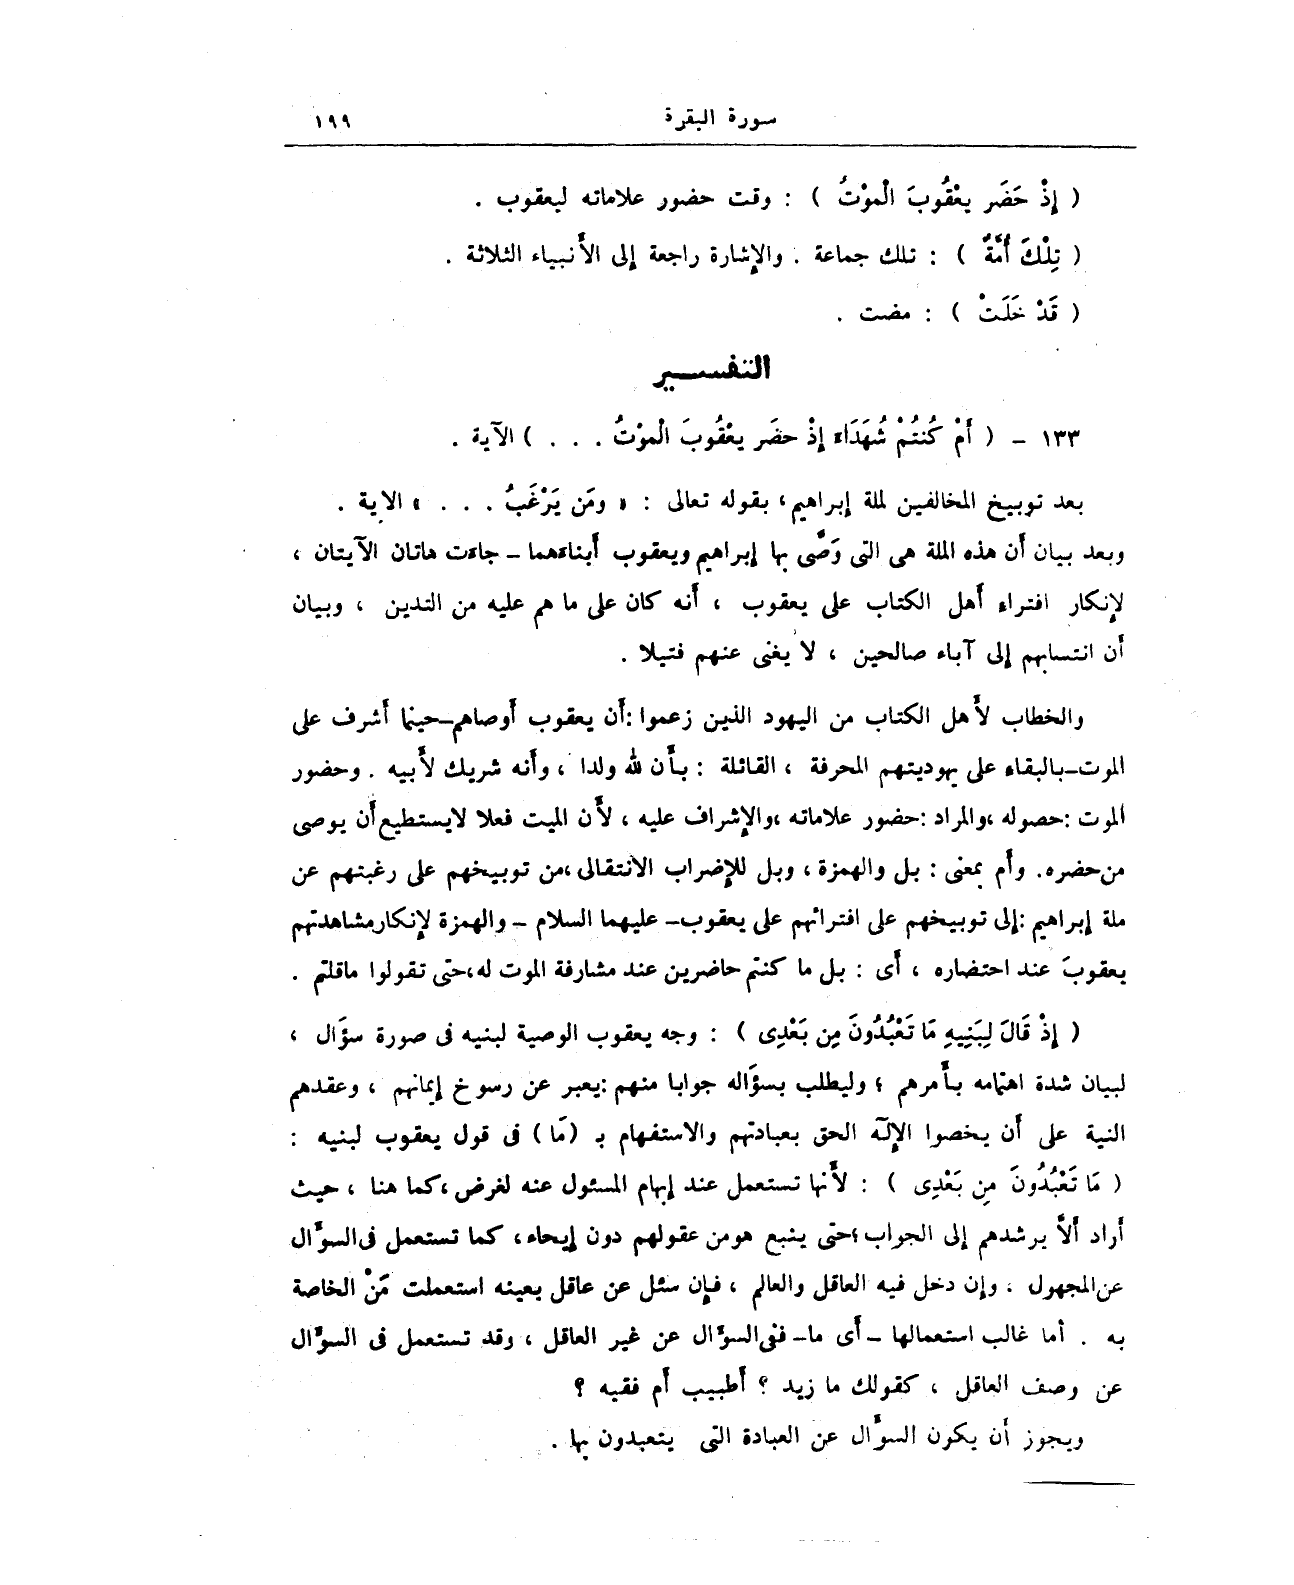 سورة البقرة ١٩٩
( إِذْ حَضَرَ يعْقُوبَ الْموْتُ ) : وقت حضور علاماته ليعقوب .
( تِلْكَ أُمَّةٌ ) : تلك جماعة . والإشارة راجعة إلى الأنبياء الثلاثة .
( قَدْ خَلَتْ ) : مضت .
التفسير
١٣٣ - ( أَمْ كُنتُمْ شُهَدَاءَ إِذْ حضَر يعْقُوبَ الْموْتُ . . . ) الآية .
بعد توبيخ المخالفين لملة إبراهيم، بقوله تعالى : « ومَن يَرْغَبُ . . . » الاية .
وبعد بيان أن هذه الملة هى التى وَصَّى بها إبراهيم ويعقوب أبناءهما - جاءت هاتان الآيتان ،
لإنكار افتراء أهل الكتاب على يعقوب ، أنه كان على ما هم عليه من التدين ، وبيان
أن انتسابهم إلى آباء صالحين ، لا يغنى عنهم فتيلا .
والخطاب لأهل الكتاب من اليهود الذين زعموا :أن يعقوب أوصاهم-حينما أشرف على
الموت-بالبقاء على يهوديتهم المحرفة ، القائلة : بأن لله ولدا ، وأنه شريك لأبيه . وحضور
الموت :حصوله ،والمراد :حضور علاماته ،والإشراف عليه ، لأن الميت فعلا لايستطيع أن يوصى
من حضره. وأم بمعنى : بل والهمزة ، وبل للإضراب الانتقالى ،من توبيخهم على رغبتهم عن
ملة إبراهيم :إلى توبيخهم على افترائهم على يعقوب- عليهما السلام - والهمزة لإنكار مشاهدتهم
يعقوبَ عند احتضاره ، أى : بل ما كنتم حاضرين عند مشارفة الموت له،حتى تقولوا ماقلتم .
( إِذْ قَالَ لِبَنِيهِ مَا تَعْبُدُونَ مِن بَعْدِى ) : وجه يعقوب الوصية لبنيه فى صورة سؤال ،
لبيان شدة اهتمامه بأمرهم ؛ وليطلب بسؤاله جوابا منهم :يعبر عن رسوخ إيمانهم ، وعقدهم
النية على أن يخصوا الإله الحق بعبادتهم والاستفهام بـ (مَا) فى قول يعقوب لبنيه :
( مَا تَعْبُدُونَ مِن بَعْدِى ) : لأنها تستعمل عند إبهام المسئول عنه لغرض ،كما هنا ، حيث
أراد ألاَّ يرشدهم إلى الجواب ؛حتى ينبع هومن عقولهم دون إيحاء، كما تستعمل فى السؤال
عن المجهول . وإن دخل فيه العاقل والعالم ، فإن سئل عن عاقل بعينه استعملت مَنْ الخاصة
به . أما غالب استعمالها - أى ما- ففى السؤال عن غير العاقل ، وقد تستعمل فى السؤال
عن وصف العاقل ، كقولك ما زيد ؟ أطبيب أم فقيه ؟
ويجوز أن يكون السؤال عن العبادة التى يتعبدون بها .